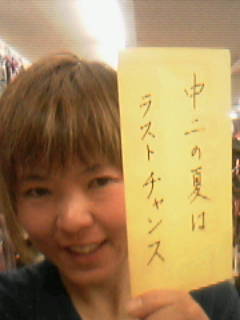 中二の夏は
ラストチャンス